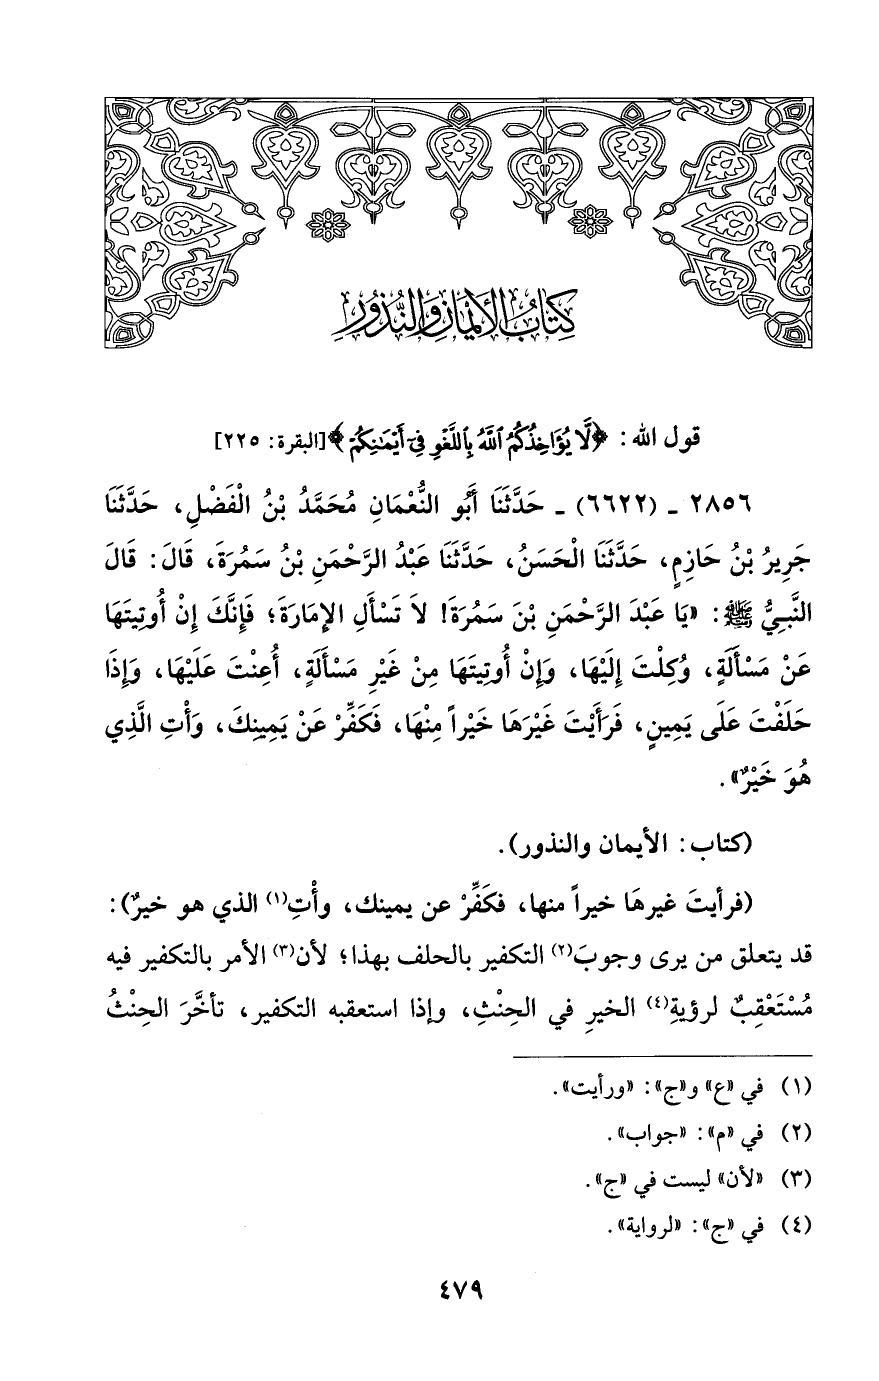 كِتَابُ الأَيْمَانِ وَالنُّذُورِ
قول الله: ﴿لَّا يُؤَاخِذُكُمُ ٱللَّهُ بِٱللَّغْوِ فِىٓ أَيْمَٰنِكُمْ﴾ [البقرة: ٢٢٥]
٢٨٥٦ ـ (٦٦٢٢) ـ حَدَّثَنَا أَبُو النُّعْمَانِ مُحَمَّدُ بْنُ الْفَضْلِ، حَدَّثَنَا
جَرِيرُ بْنُ حَازِمٍ، حَدَّثَنَا الْحَسَنُ، حَدَّثَنَا عَبْدُ الرَّحْمَنِ بْنُ سَمُرَةَ، قَالَ: قَالَ
النَّبِيُّ ﷺ: «يَا عَبْدَ الرَّحْمَنِ بْنَ سَمُرَةَ! لاَ تَسْأَلِ الإِمَارَةَ؛ فَإِنَّكَ إِنْ أُوتِيتَهَا
عَنْ مَسْأَلَةٍ، وُكِلْتَ إِلَيْهَا، وَإِنْ أُوتِيتَهَا مِنْ غَيْرِ مَسْأَلَةٍ، أُعِنْتَ عَلَيْهَا، وَإِذَا
حَلَفْتَ عَلَى يَمِينٍ، فَرَأَيْتَ غَيْرَهَا خَيْراً مِنْهَا، فَكَفِّرْ عَنْ يَمِينِكَ، وَأْتِ الَّذِي
هُوَ خَيْرٌ».
(كتاب: الأيمان والنذور).
(فرأيتَ غيرهَا خيراً منها، فكَفِّرْ عن يمينك، وأْتِ(١) الذي هو خيرٌ):
قد يتعلق من يرى وجوبَ(٢) التكفير بالحلف بهذا؛ لأن(٣) الأمر بالتكفير فيه
مُسْتَعْقِبٌ لرؤيةِ(٤) الخيرِ في الحِنْثِ، وإذا استعقبه التكفير، تأخَّرَ الحِنْثُ
(١) في «ع» و«ج»: «ورأيت».
(٢) في «م»: «جواب».
(٣) «لأن» ليست في «ج».
(٤) في «ج»: «لرواية».
٤٧٩